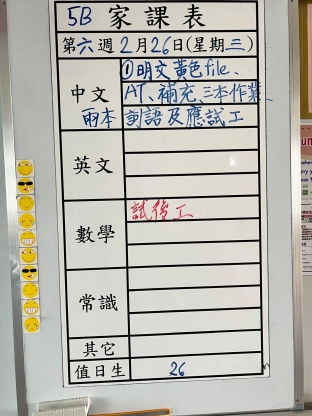 5B 家課表
第六週 2月26日(星期三)
中文
①明交黃色file、
AT、補充、三本作業、
兩本詞語及應試工
英文
數學
試後工
常識
其它
值日生 26